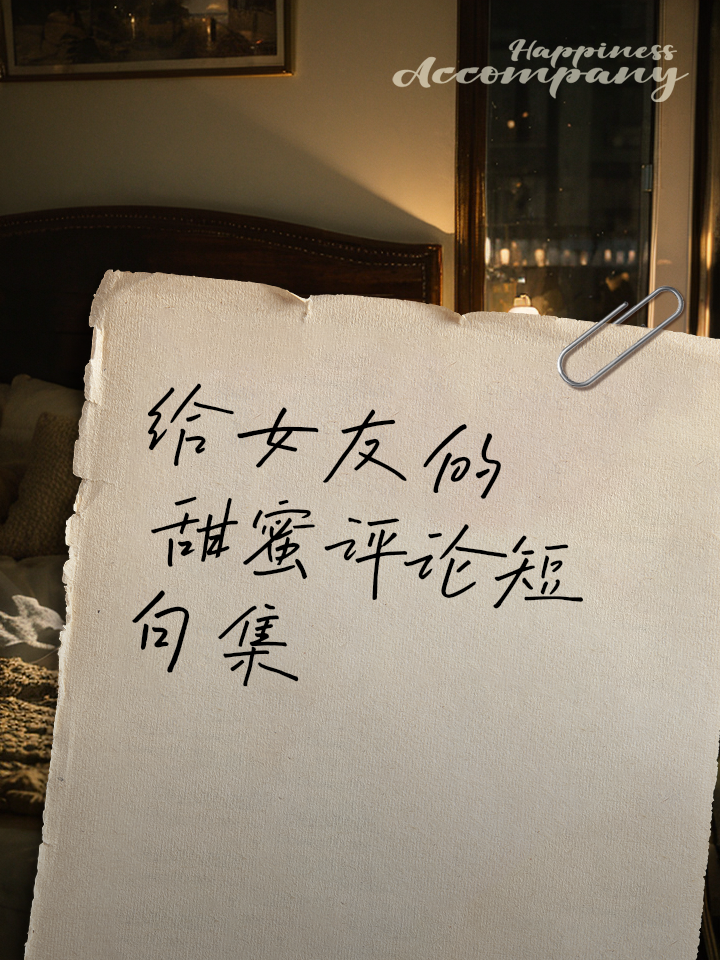 Happiness
Accompany
给女友的
甜蜜评论短
句集